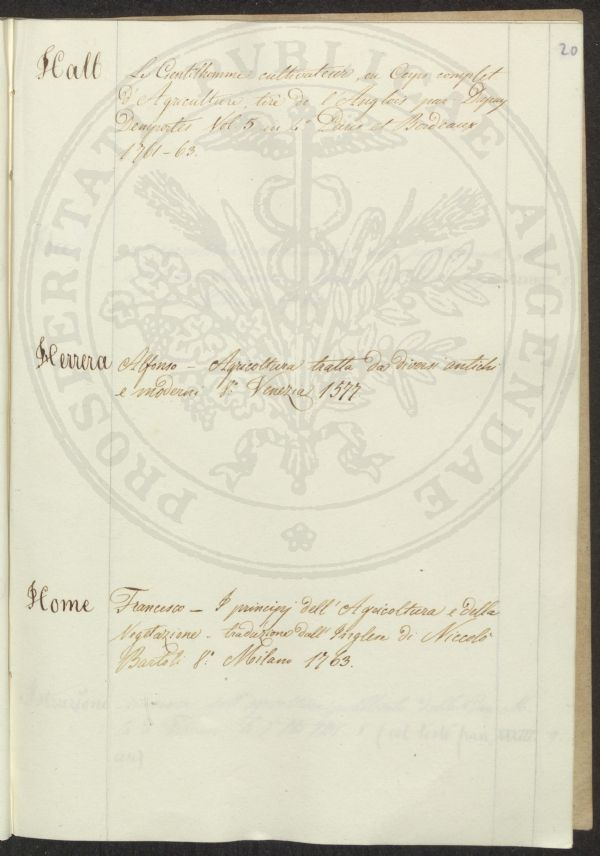 20
Hall Le Gentilhomme cultivateur, ou Corps complet
d'Agriculture, tiré de l'Anglois par Dupuy
Demportes Vol 5 in 4° Paris et Bordeaux
1761-63.
Herrera Alfonso - Agricoltura tratta da diversi antichi
e moderni 8° Venezia 1577
Home Francesco - I principj dell'Agricoltura e della
Vegetazione - traduzione dall'Inglese di Niccolò
Bartoli 8° Milano 1763.
PROSPERITATI PVBLICAE AVGENDAE